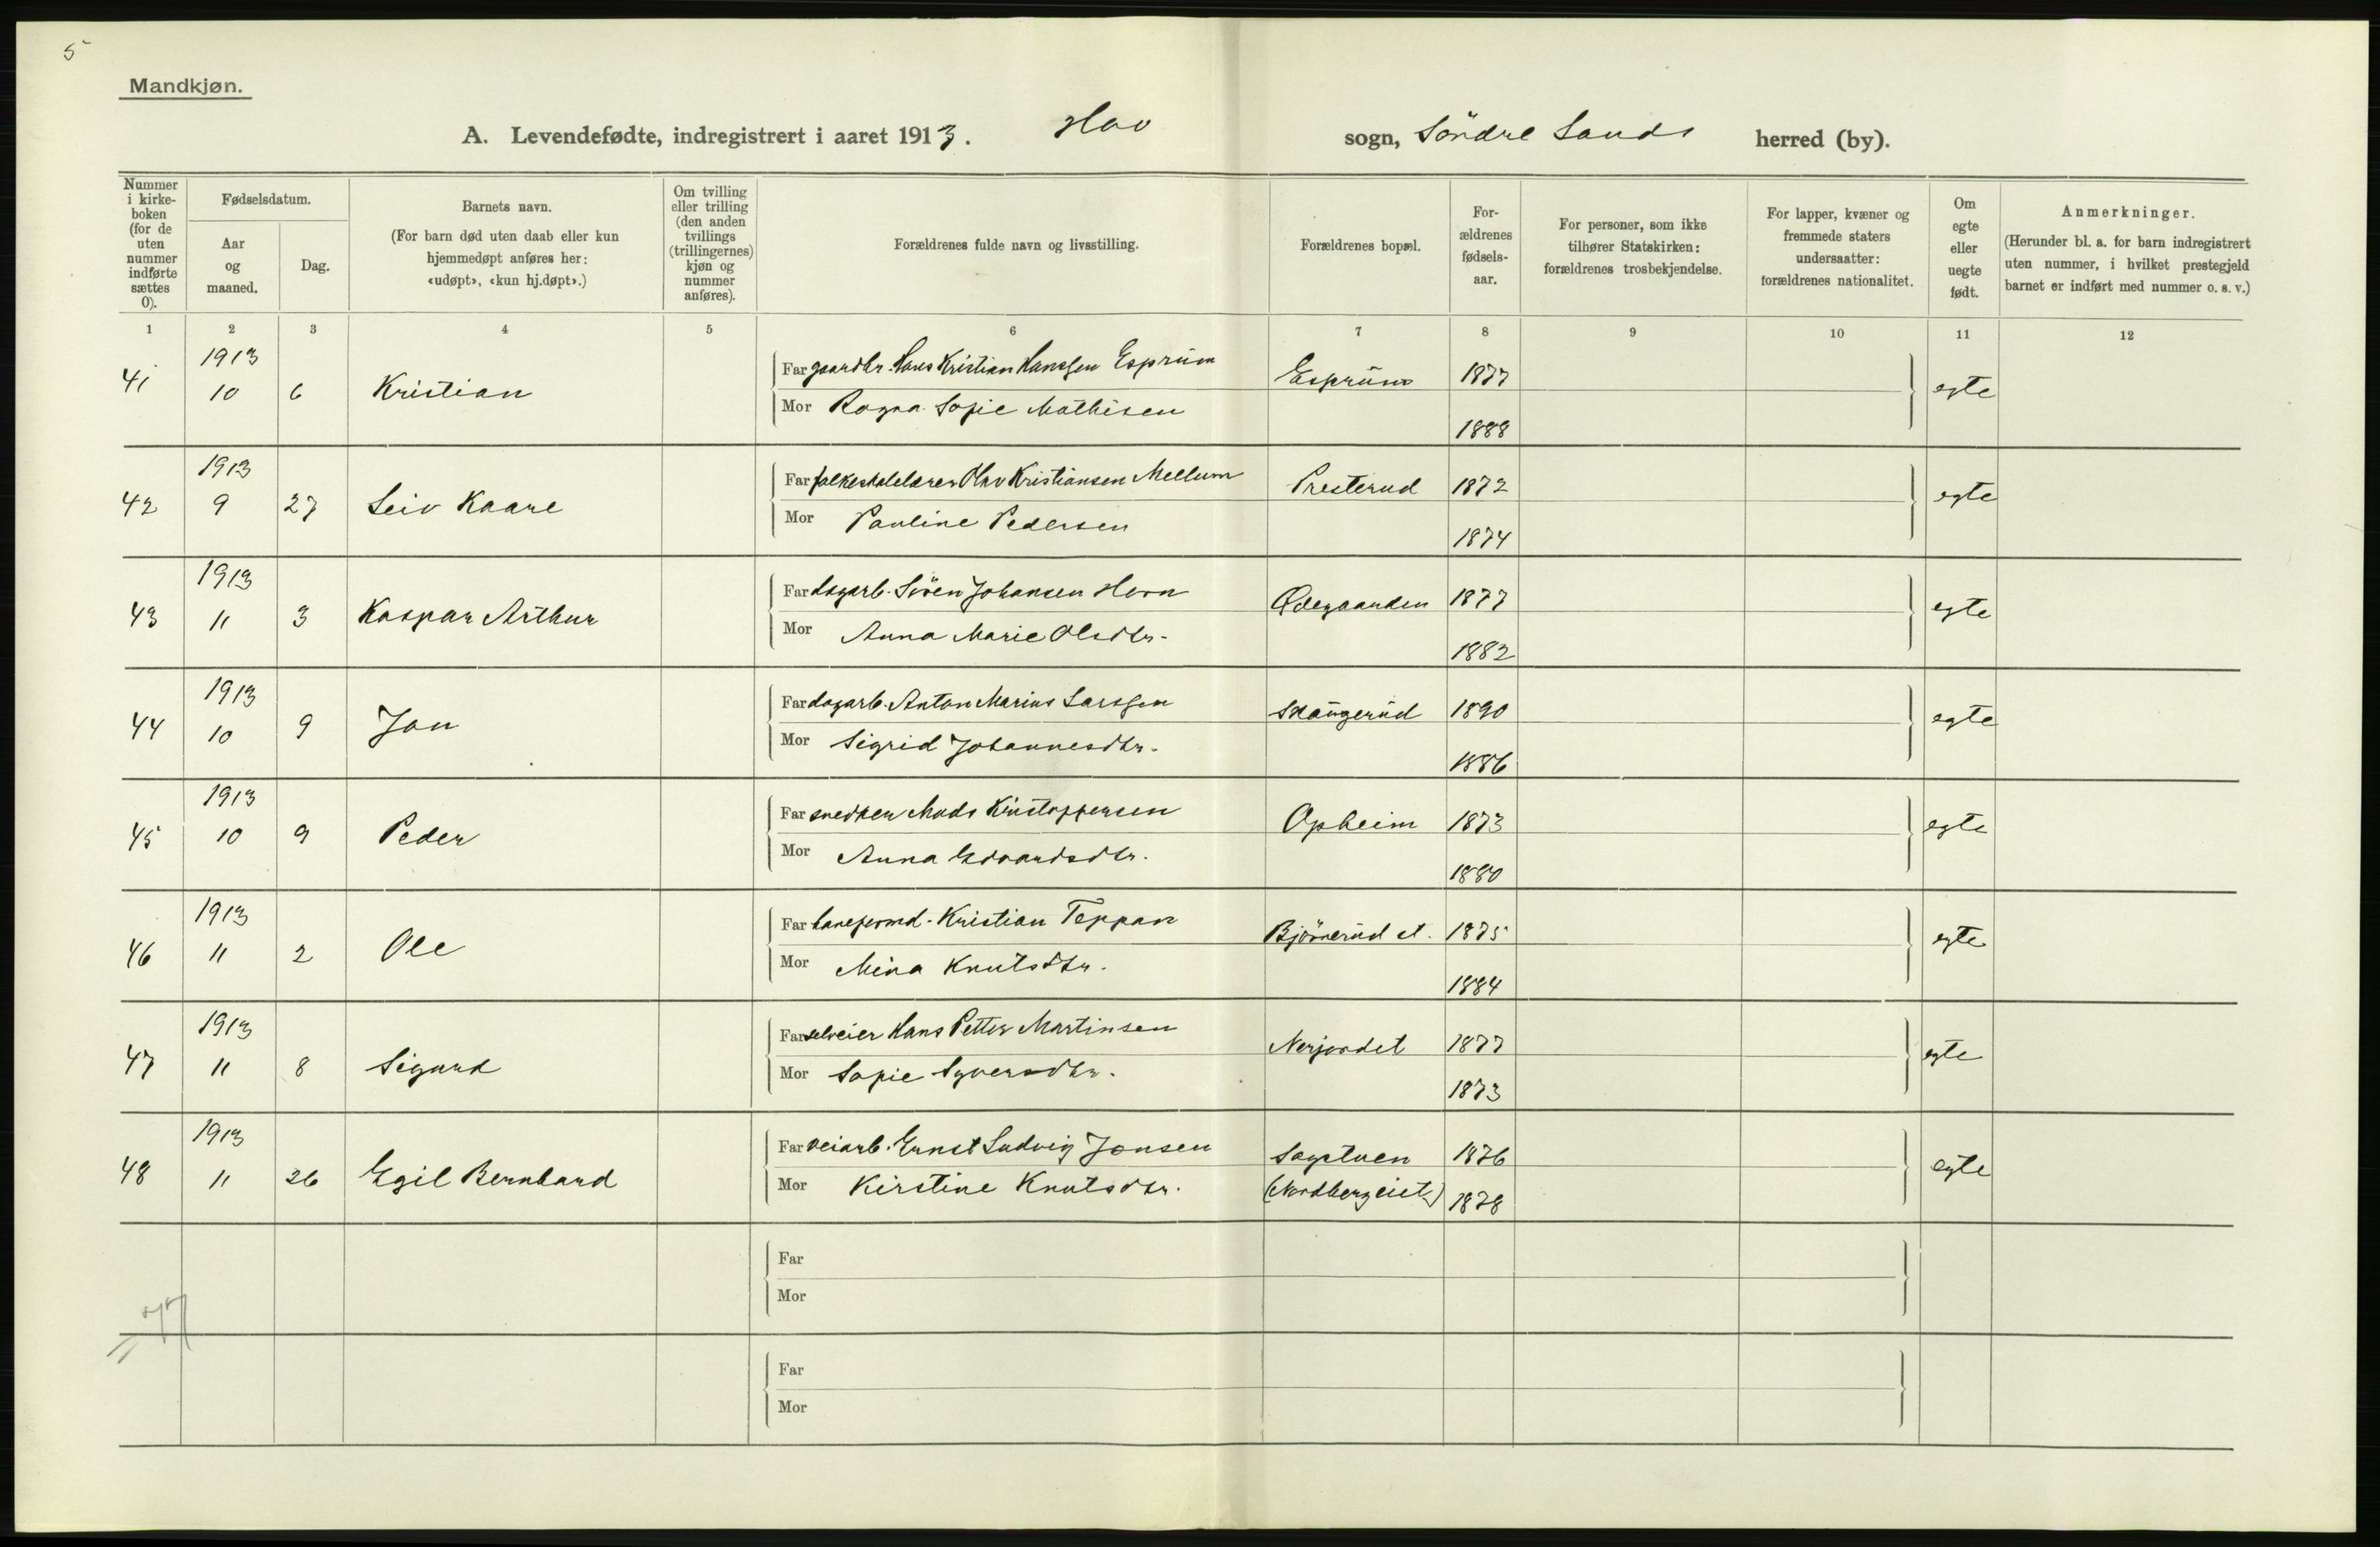 5
Mandkjøn.
A. Levendefødte, indregistrert i aaret 1913. Hov sogn, Söndre Lands herred (by).
Nummer i kirke-boken (for de uten nummer indførte sættes 0).
Fødselsdatum.
Aar og maaned.
Dag.
Barnets navn.
(For barn død uten daab eller kun hjemmedøpt anføres her: «udøpt», «kun hj.døpt».)
Om tvilling eller trilling (den anden tvillings (trillingernes) kjøn og nummer anføres).
Forældrenes fulde navn og livsstilling.
Forældrenes bopæl.
For-ældrenes fødsels-aar.
For personer, som ikke tilhører Statskirken: forældrenes trosbekjendelse.
For lapper, kvæner og fremmede staters undersaatter: forældrenes nationalitet.
Om egte eller uegte født.
Anmerkninger.
(Herunder bl. a. for barn indregistrert uten nummer, i hvilket prestegjeld barnet er indført med nummer o. s. v.)
1 2 3 4 5 6 7 8 9 10 11 12
41 1913 10 6 Kristian Far gaardbr. Hans Kristian Hanssen Esprum Esprum 1877 egte
Mor Ragna Sofie Mathisen 1888
42 1913 9 27 Leiv Kaare Far folkeskolelærer Olav Kristiansen Mellum Presterud 1872 egte
Mor Pauline Pedersen 1874
43 1913 11 3 Kaspar Arthur Far dagarb. Sören Johansen Horn Ødegaarden 1877 egte
Mor Anna Marie Olsdtr. 1882
44 1913 10 9 Jon Far dagarb. Anton Marius Larssen Skaugerud 1890 egte
Mor Sigrid Johannesdtr. 1886
45 1913 10 9 Peder Far snedker Mads Kristoffersen Opheim 1873 egte
Mor Anna Edvardsdtr. 1880
46 1913 11 2 Ole Far baneformd. Kristian Toppan Bjönerud st. 1875 egte
Mor Mina Knutsdtr. 1884
47 1913 11 8 Sigurd Far selveier Hans Petter Martinsen Nerjordet 1877 egte
Mor Sofie Syversdtr. 1873
48 1913 11 26 Egil Bernhard Far veiarb. Ernst Ludvig Jonsen Sagstuen 1876 egte
Mor Kirstine Knutsdtr. (Nordberg eiet) 1878
Far
Mor
Far
Mor